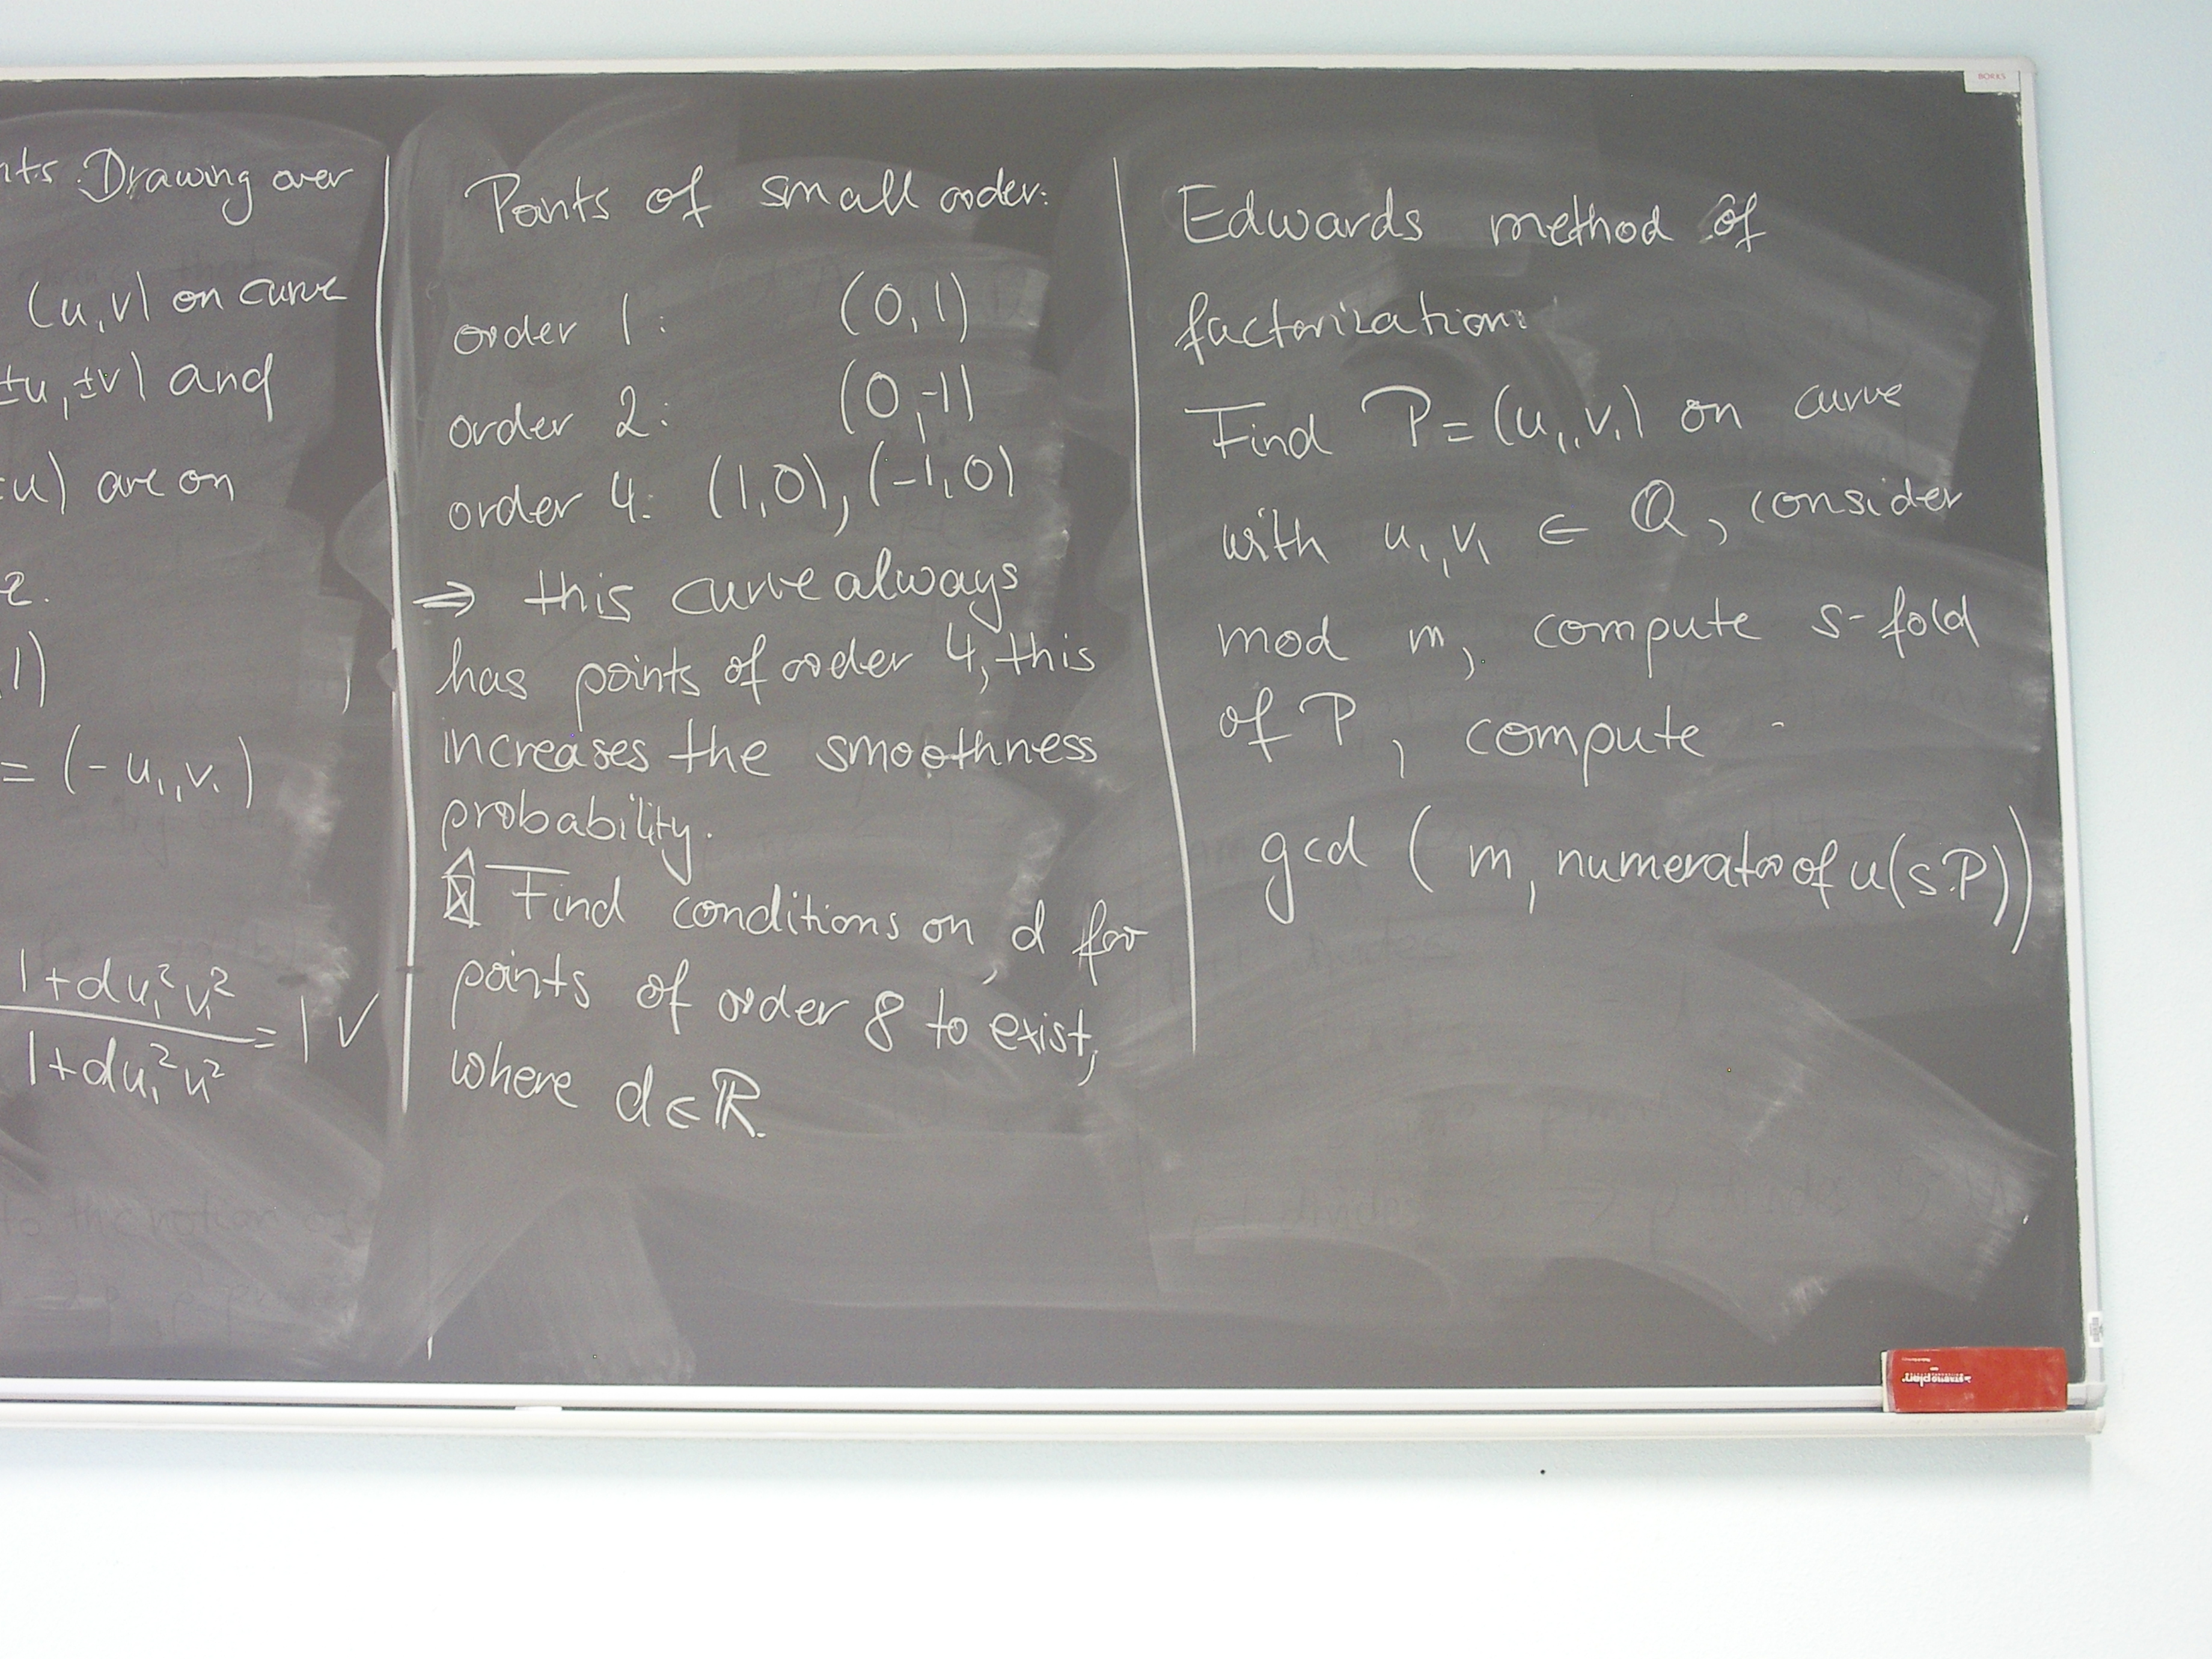 Drawing over
(u,v) on curve
±u, ±v) and
u) are on
2.
,1)
= (-u₁,v₁)
1+du₁²v₁²
1+du₁²v₁² = 1 √
Points of small order:
order 1: (0,1)
order 2: (0,-1)
order 4: (1,0), (-1,0)
⇒ this curve always
has points of order 4, this
increases the smoothness
probability.
Find conditions on d for
points of order 8 to exist,
where d∈ℝ.
Edwards method of
factorization:
Find P=(u₁,v₁) on curve
with u₁,v₁ ∈ ℚ, consider
mod m, compute s-fold
of P, compute
gcd (m, numerator of u(s·P))
BORKS